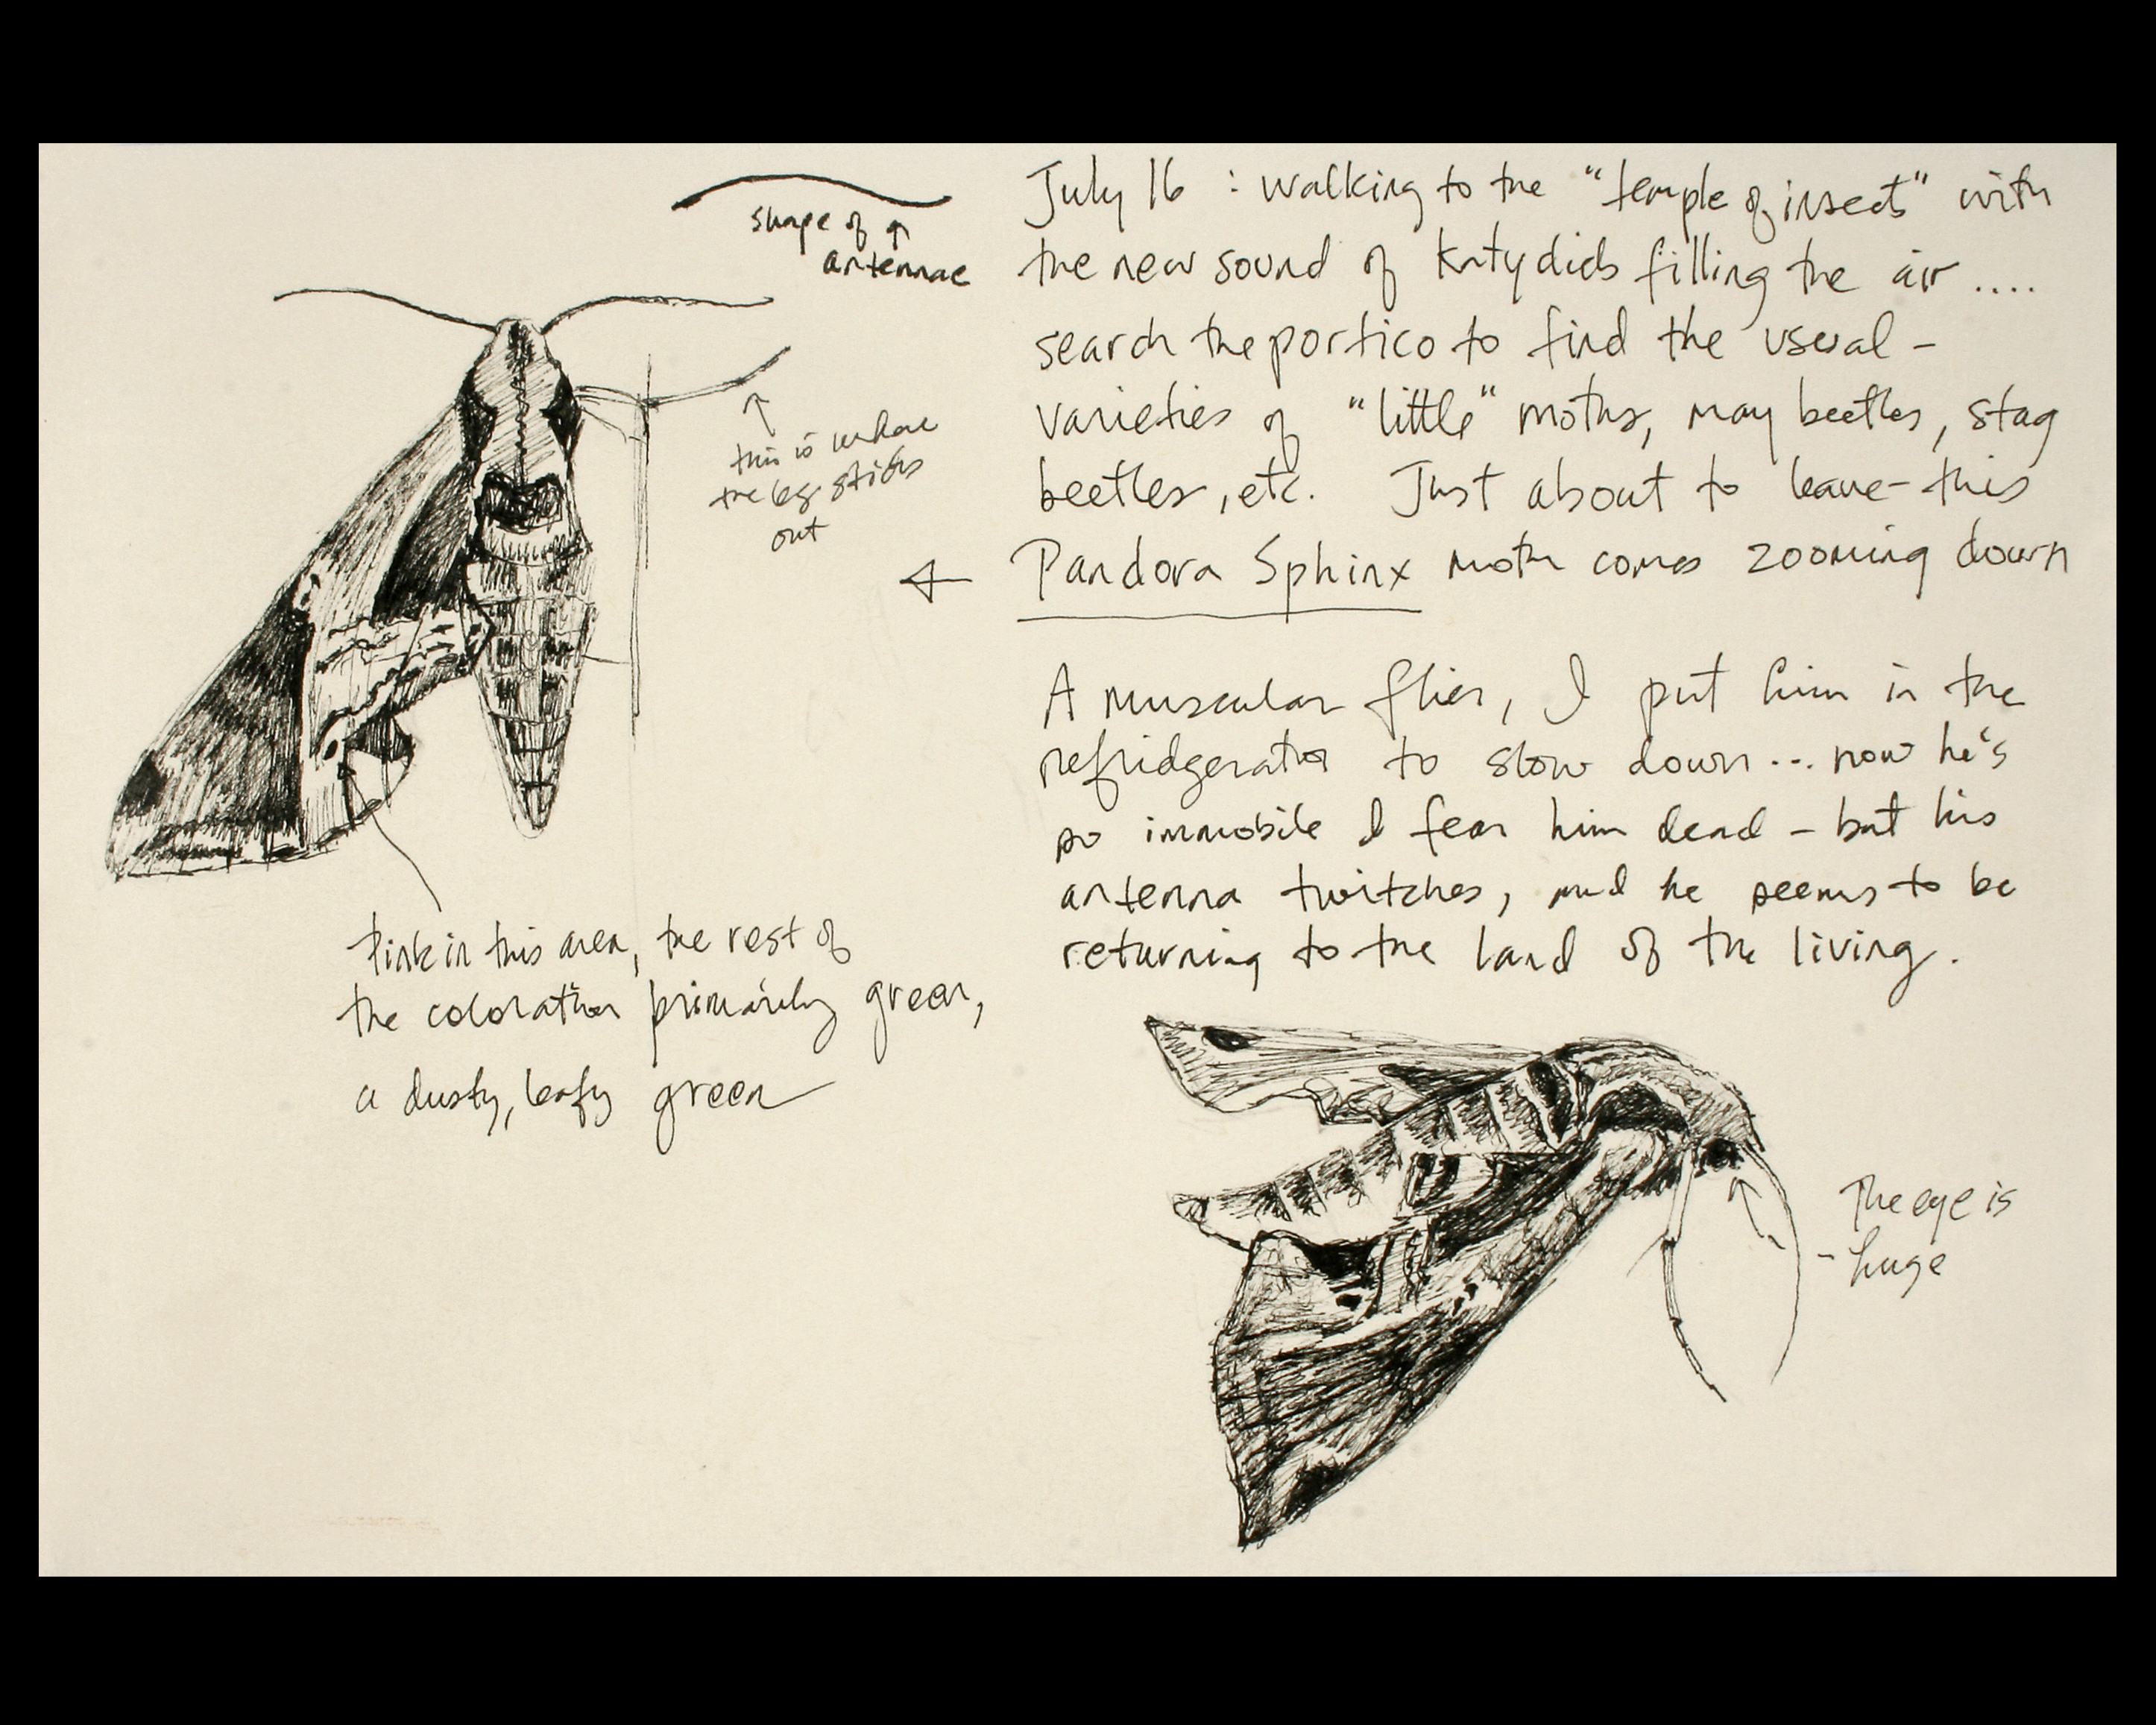 shape of
antennae
this is where
the leg sticks
out
Pink in this area, the rest of
the coloration primarily green,
a dusty, leafy green
July 16 : walking to the "temple of insects" with
the new sound of katydids filling the air ....
search the portico to find the usual -
varieties of "little" moths, may beetles, stag
beetles, etc. Just about to leave - this
Pandora Sphinx moth comes zooming down
A muscular flier, I put him in the
refridgerator to slow down... now he's
so immobile I fear him dead - but his
antenna twitches, and he seems to be
returning to the land of the living.
The eye is
- huge